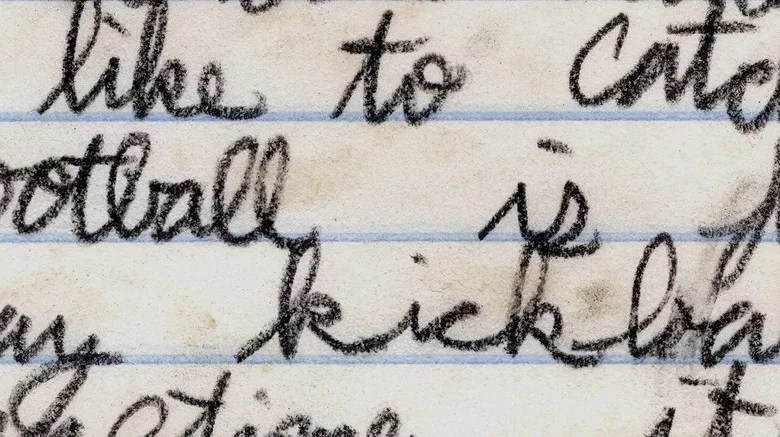 like to catc
ootball is
ay kickba